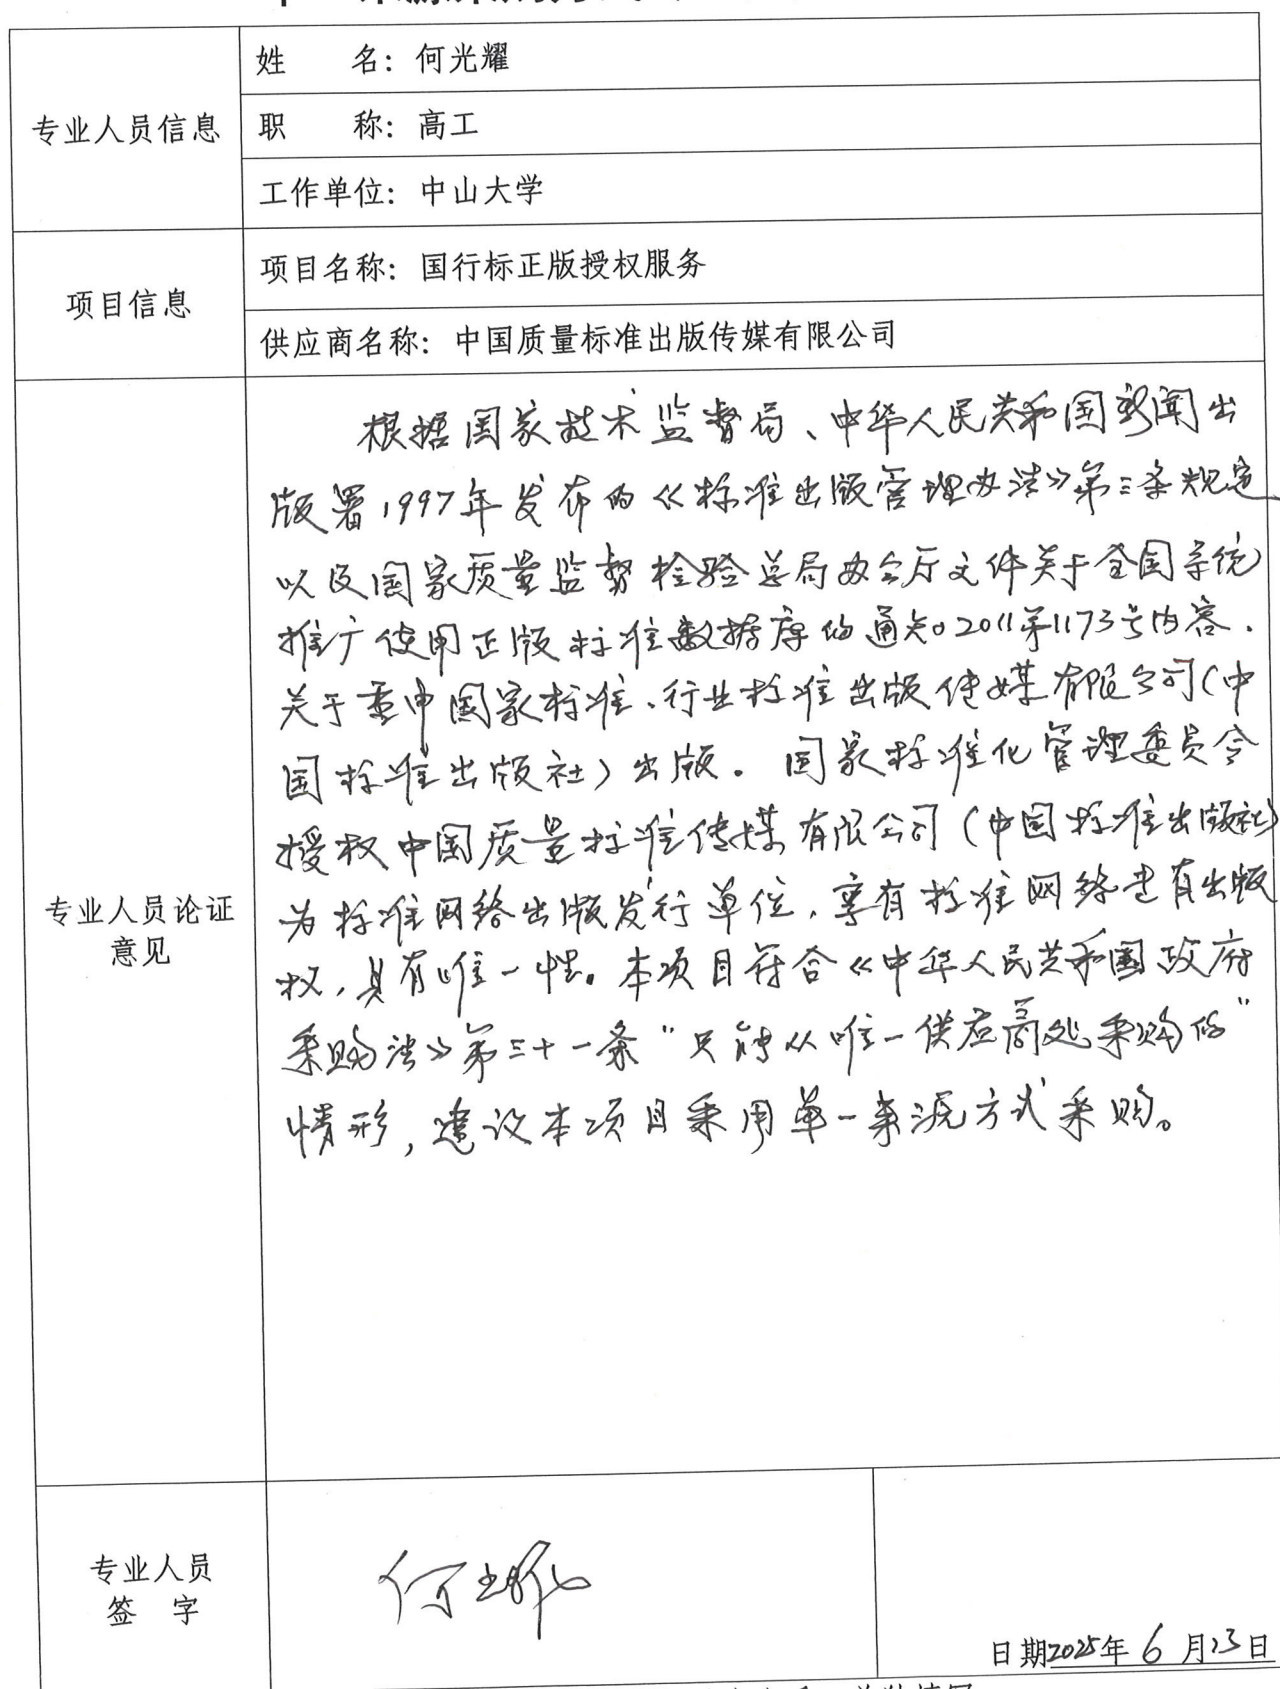 专业人员信息
姓 名：何光耀
职 称：高工
工作单位：中山大学
项目信息
项目名称：国行标正版授权服务
供应商名称：中国质量标准出版传媒有限公司
专业人员论证
意见
根据国家技术监督局、中华人民共和国新闻出
版署1997年发布的《标准出版管理办法》第三条规定
以及国家质量监督检验总局办公厅文件关于全国系统
推广使用正版标准数据库的通知2011第1173号内容.
关于重申国家标准、行业标准出版传媒有限公司(中
国标准出版社)出版。国家标准化管理委员会
授权中国质量标准传媒有限公司(中国标准出版社)
为标准网络出版发行单位,享有标准网络专有出版
权,具有唯一性。本项目符合《中华人民共和国政府
采购法》第三十一条"只能从唯一供应商处采购的"
情形,建议本项目采用单一来源方式采购。
专业人员
签 字
何光耀
日期2025年6月13日